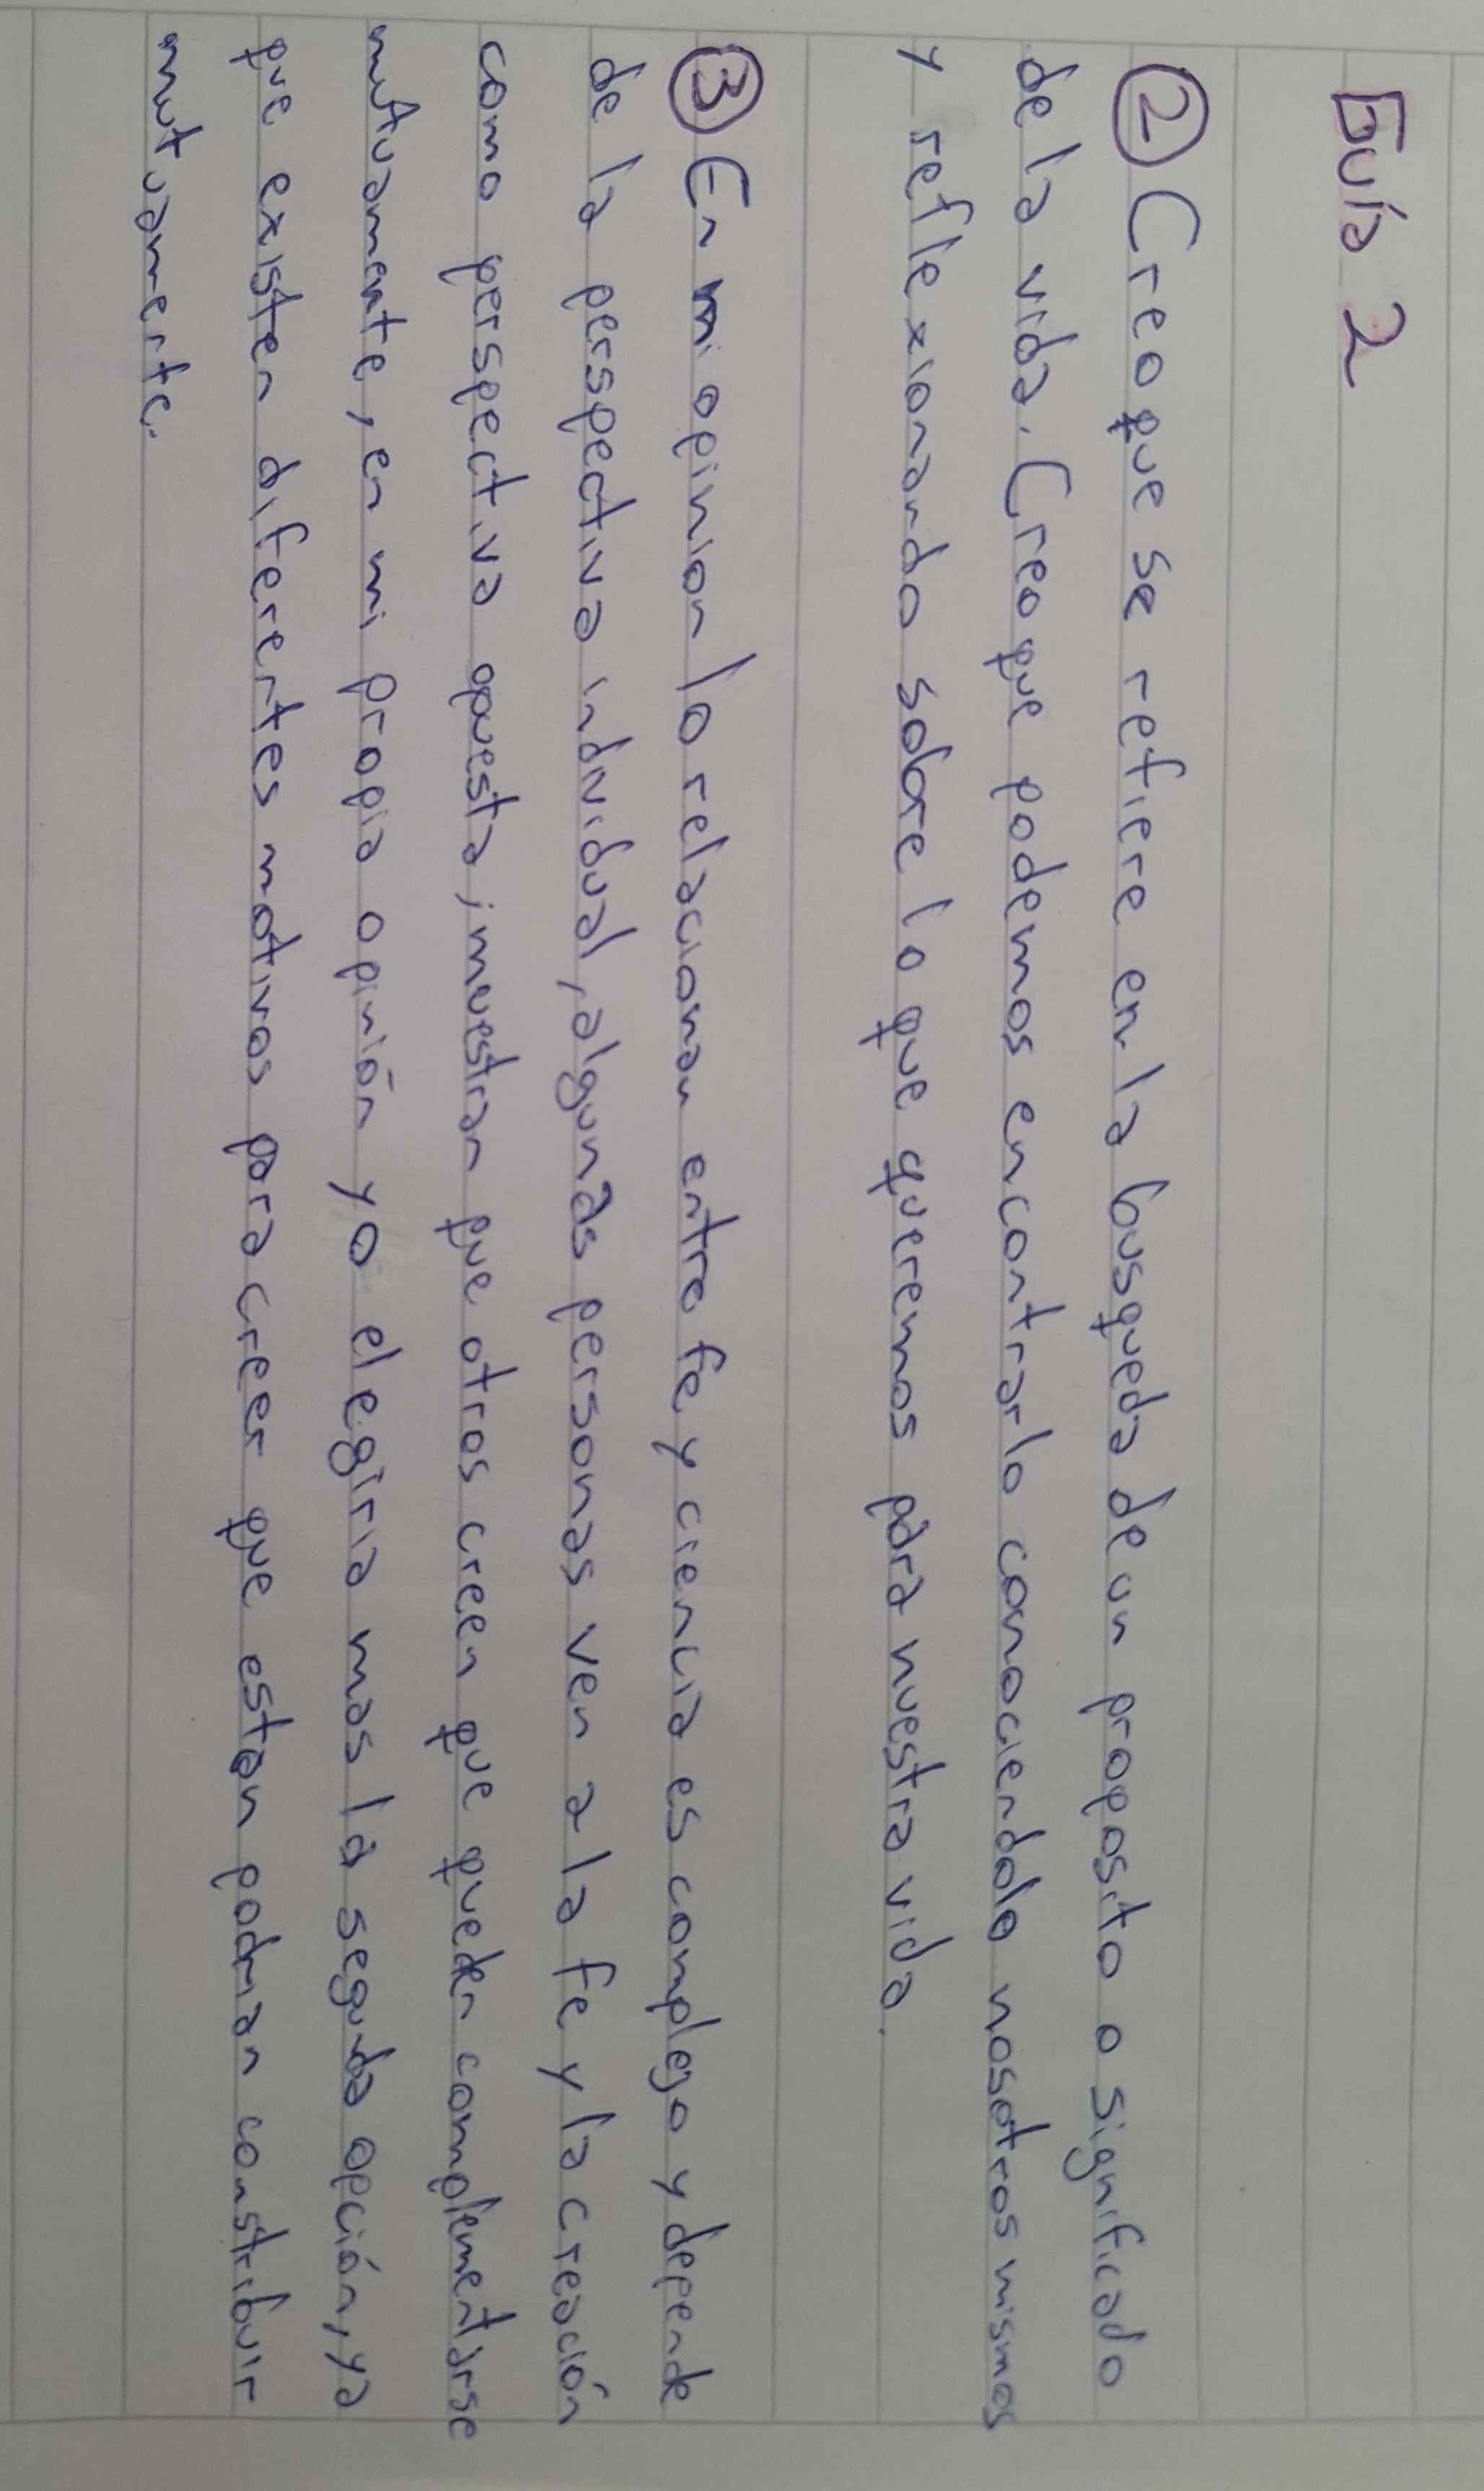 Guía 2
② Creo que se refiere en la busqueda de un proposito o significado
de la vida. Creo que podemos encontrarlo conociendolo nosotros mismos
y reflexionando sobre lo que queremos para nuestra vida.
③ En mi opinion lo relacionan entre fe y ciencia es complejo y depende
de la perspectiva individual, algunas personas ven a la fe y la creación
como perspectiva opuesta; muestran que otros creen que queden complementarse
mutuamente, en mi propia opinión yo elegiria mas la segunda opción, ya
que existen diferentes motivos para creer que estan podrian constribuir
mutuamente.